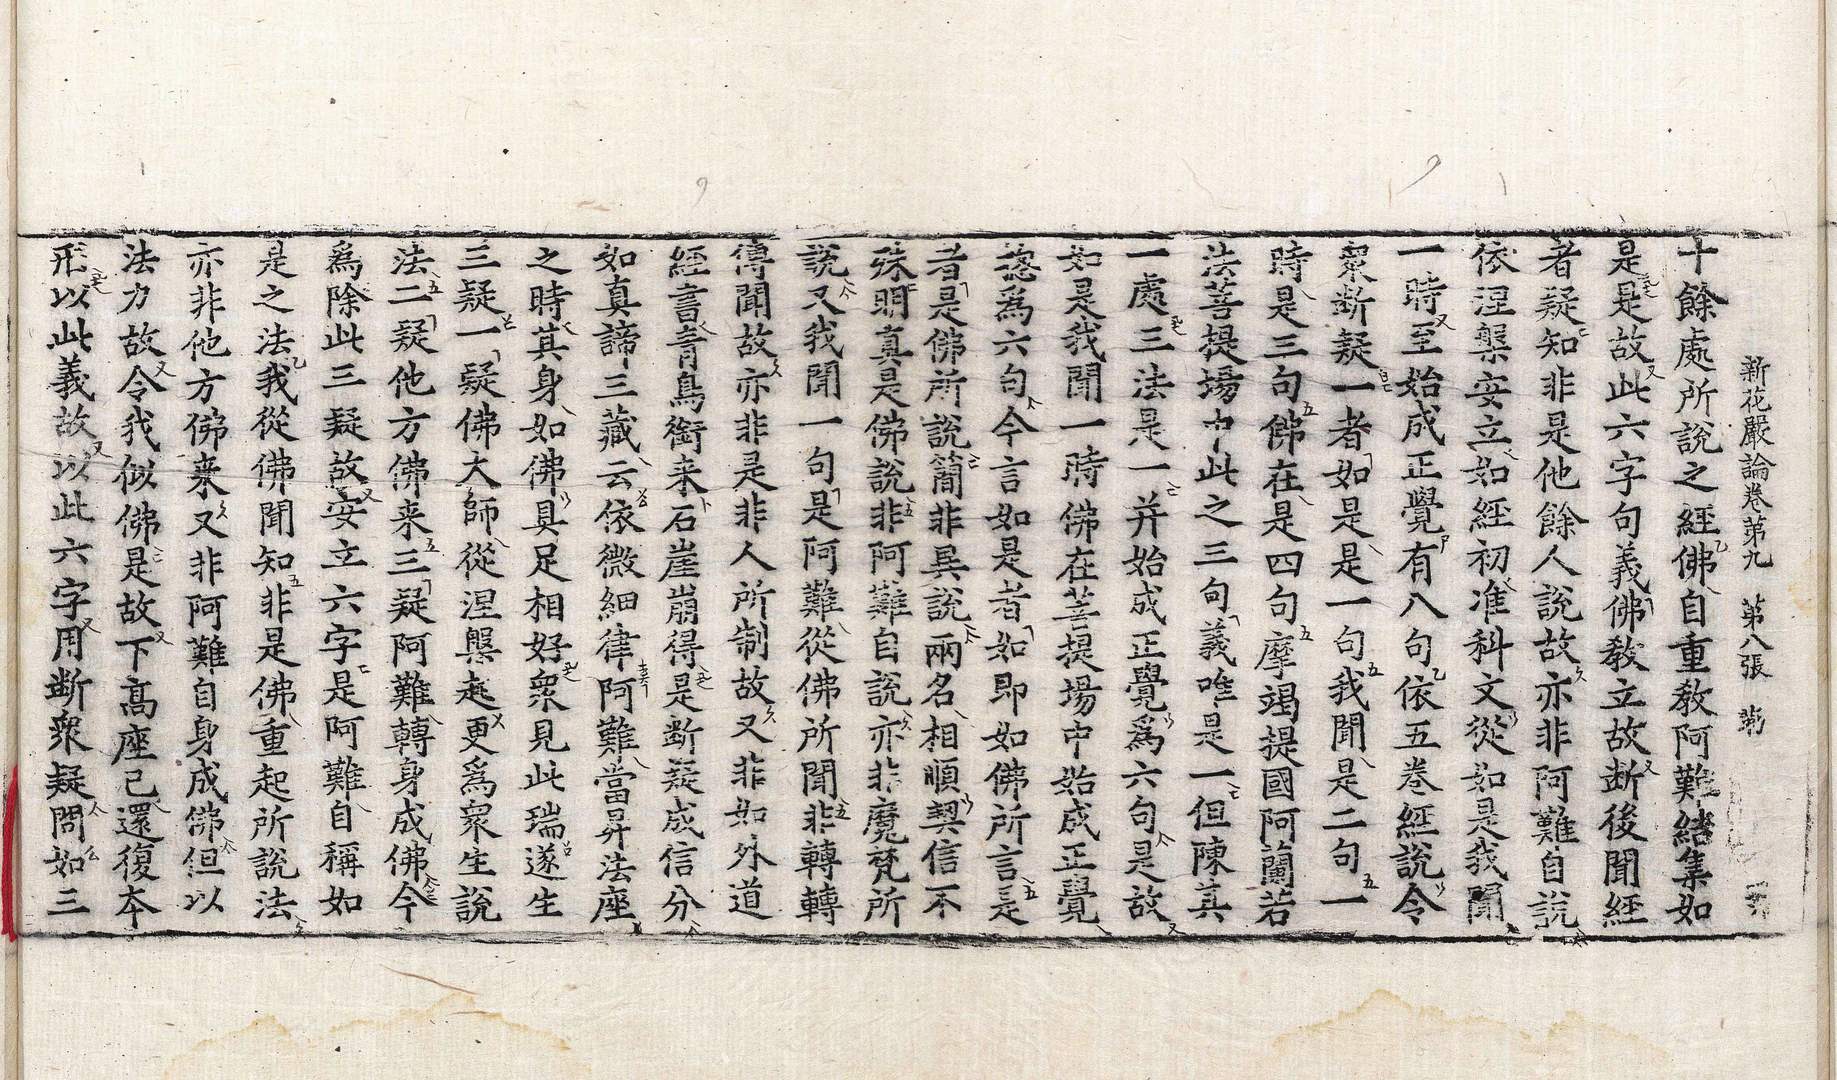 新花嚴論卷第九　第八張　弟
十餘處所說之經佛自重教阿難結集如
是是故此六字句義佛教立故断後聞經
者疑知非是他餘人說故亦非阿難自說
依涅槃安立如經初准科文從如是我聞
一時至始成正覺有八句依五卷經說令
衆断疑一者如是是一句我聞是二句一
時是三句佛在是四句摩竭提國阿蘭若
法菩提場中此之三句義唯是一但陳其
一處三法是一并始成正覺爲六句是故
如是我聞一時佛在菩提場中始成正覺
惣爲六句今言如是者如即如佛所言是
者是佛所說簡非異說兩名相順契信不
殊明真是佛說非阿難自說亦非魔梵所
說又我聞一句是阿難從佛所聞非轉轉
傳聞故亦非是非人所制故又非如外道
經書青鳥銜来石崖崩得是断疑成信分
如真諦三藏云依微細律阿難當昇法座
之時其身如佛具足相好衆見此瑞遂生
三疑一疑佛大師從涅槃起更爲衆生說
法二疑他方佛来三疑阿難轉身成佛今
爲除此三疑故安立六字是阿難自稱如
是之法我從佛聞知非是佛重起所說法
亦非他方佛来又非阿難自身成佛但以
法力故令我似佛是故下高座已還復本
形以此義故以此六字用断衆疑問如三